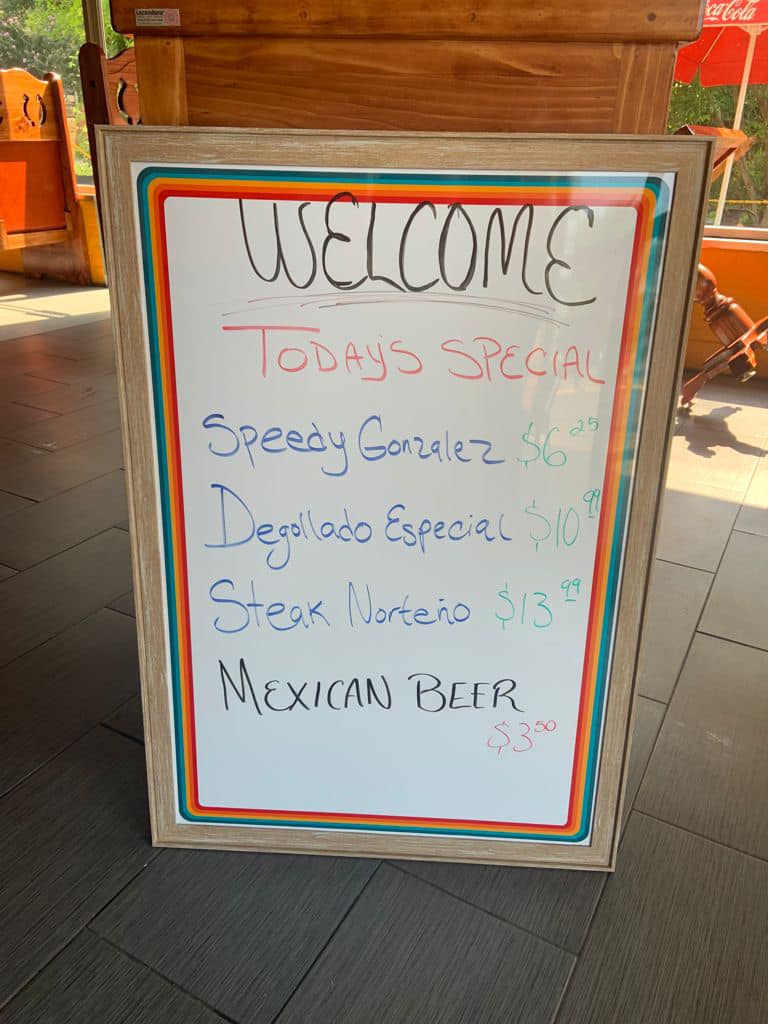 WELCOME
TODAY'S SPECIAL
Speedy Gonzalez $6 25
Degollado Especial $10 99
Steak Norteño $13 99
MEXICAN BEER
$3 50
Coca-Cola